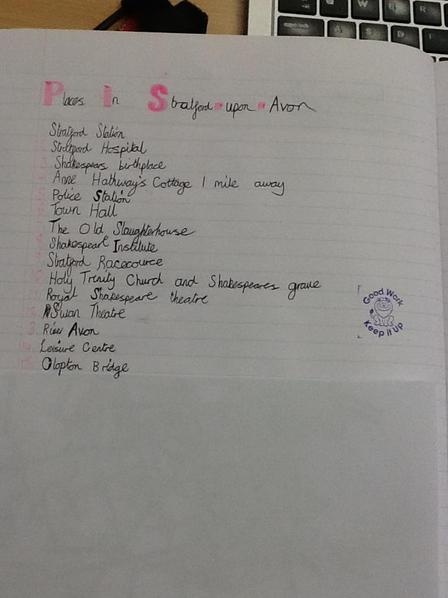 Places In Stratford-upon-Avon
Stratford Station
Stratford Hospital
Shakespears birthplace
Anne Hathway's Cottage 1 mile away
Police Station
Town Hall
The Old Slaughterhouse
Shakespeare Institute
Stratford Racecource
Holy Trinity Church and Shakespeares grave
Royal Shakespeare theatre
Swan Theatre
River Avon
Leisure Centre
Clopton Bridge
Good Work
Keep it Up